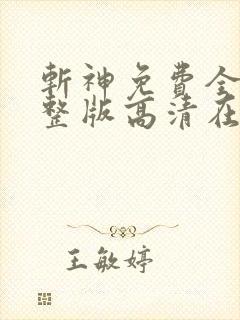 斬神免費全
整版高清在
王敏婷